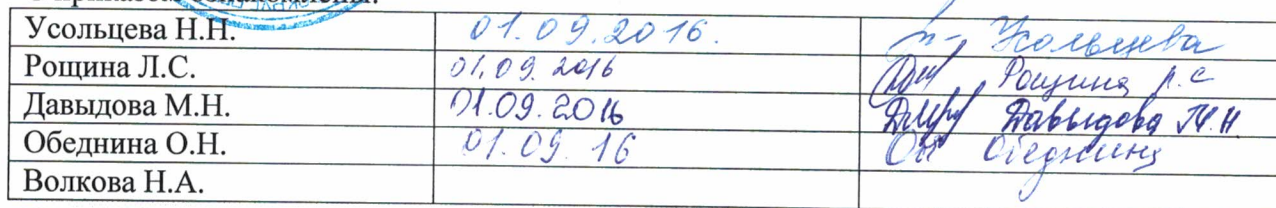 Усольцева Н.Н. 01.09.2016. Усольцева
Рощина Л.С. 01.09.2016 Рощина Л.С
Давыдова М.Н. 01.09.2016 Давыдова М.Н
Обеднина О.Н. 01.09.16 Обеднина
Волкова Н.А.